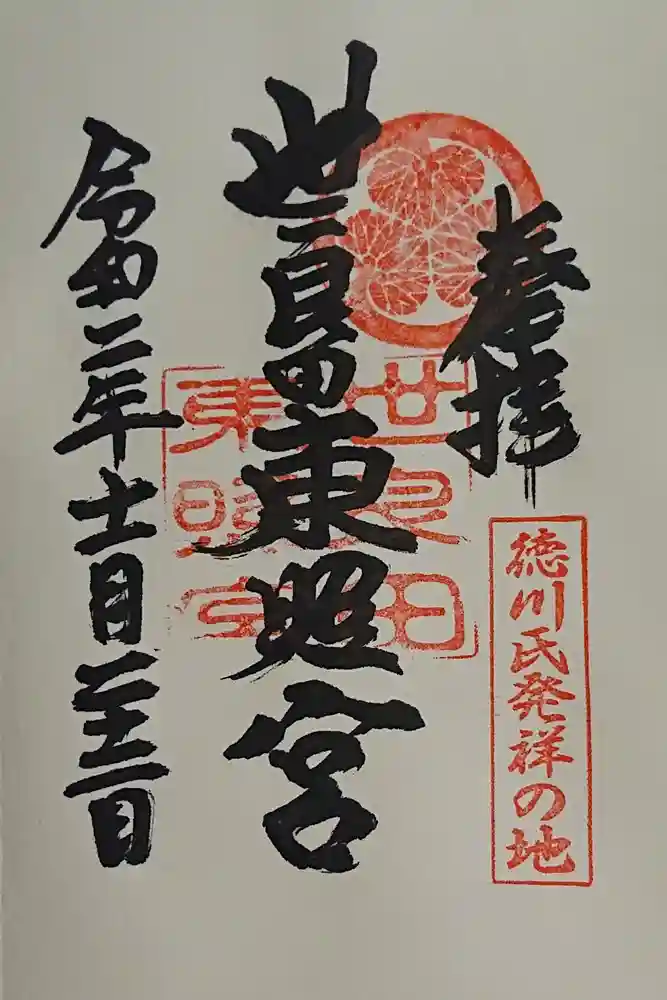 奉拝
徳川氏発祥の地
世良田東照宮
世良田
東照宮
令和二年十一月二十二日